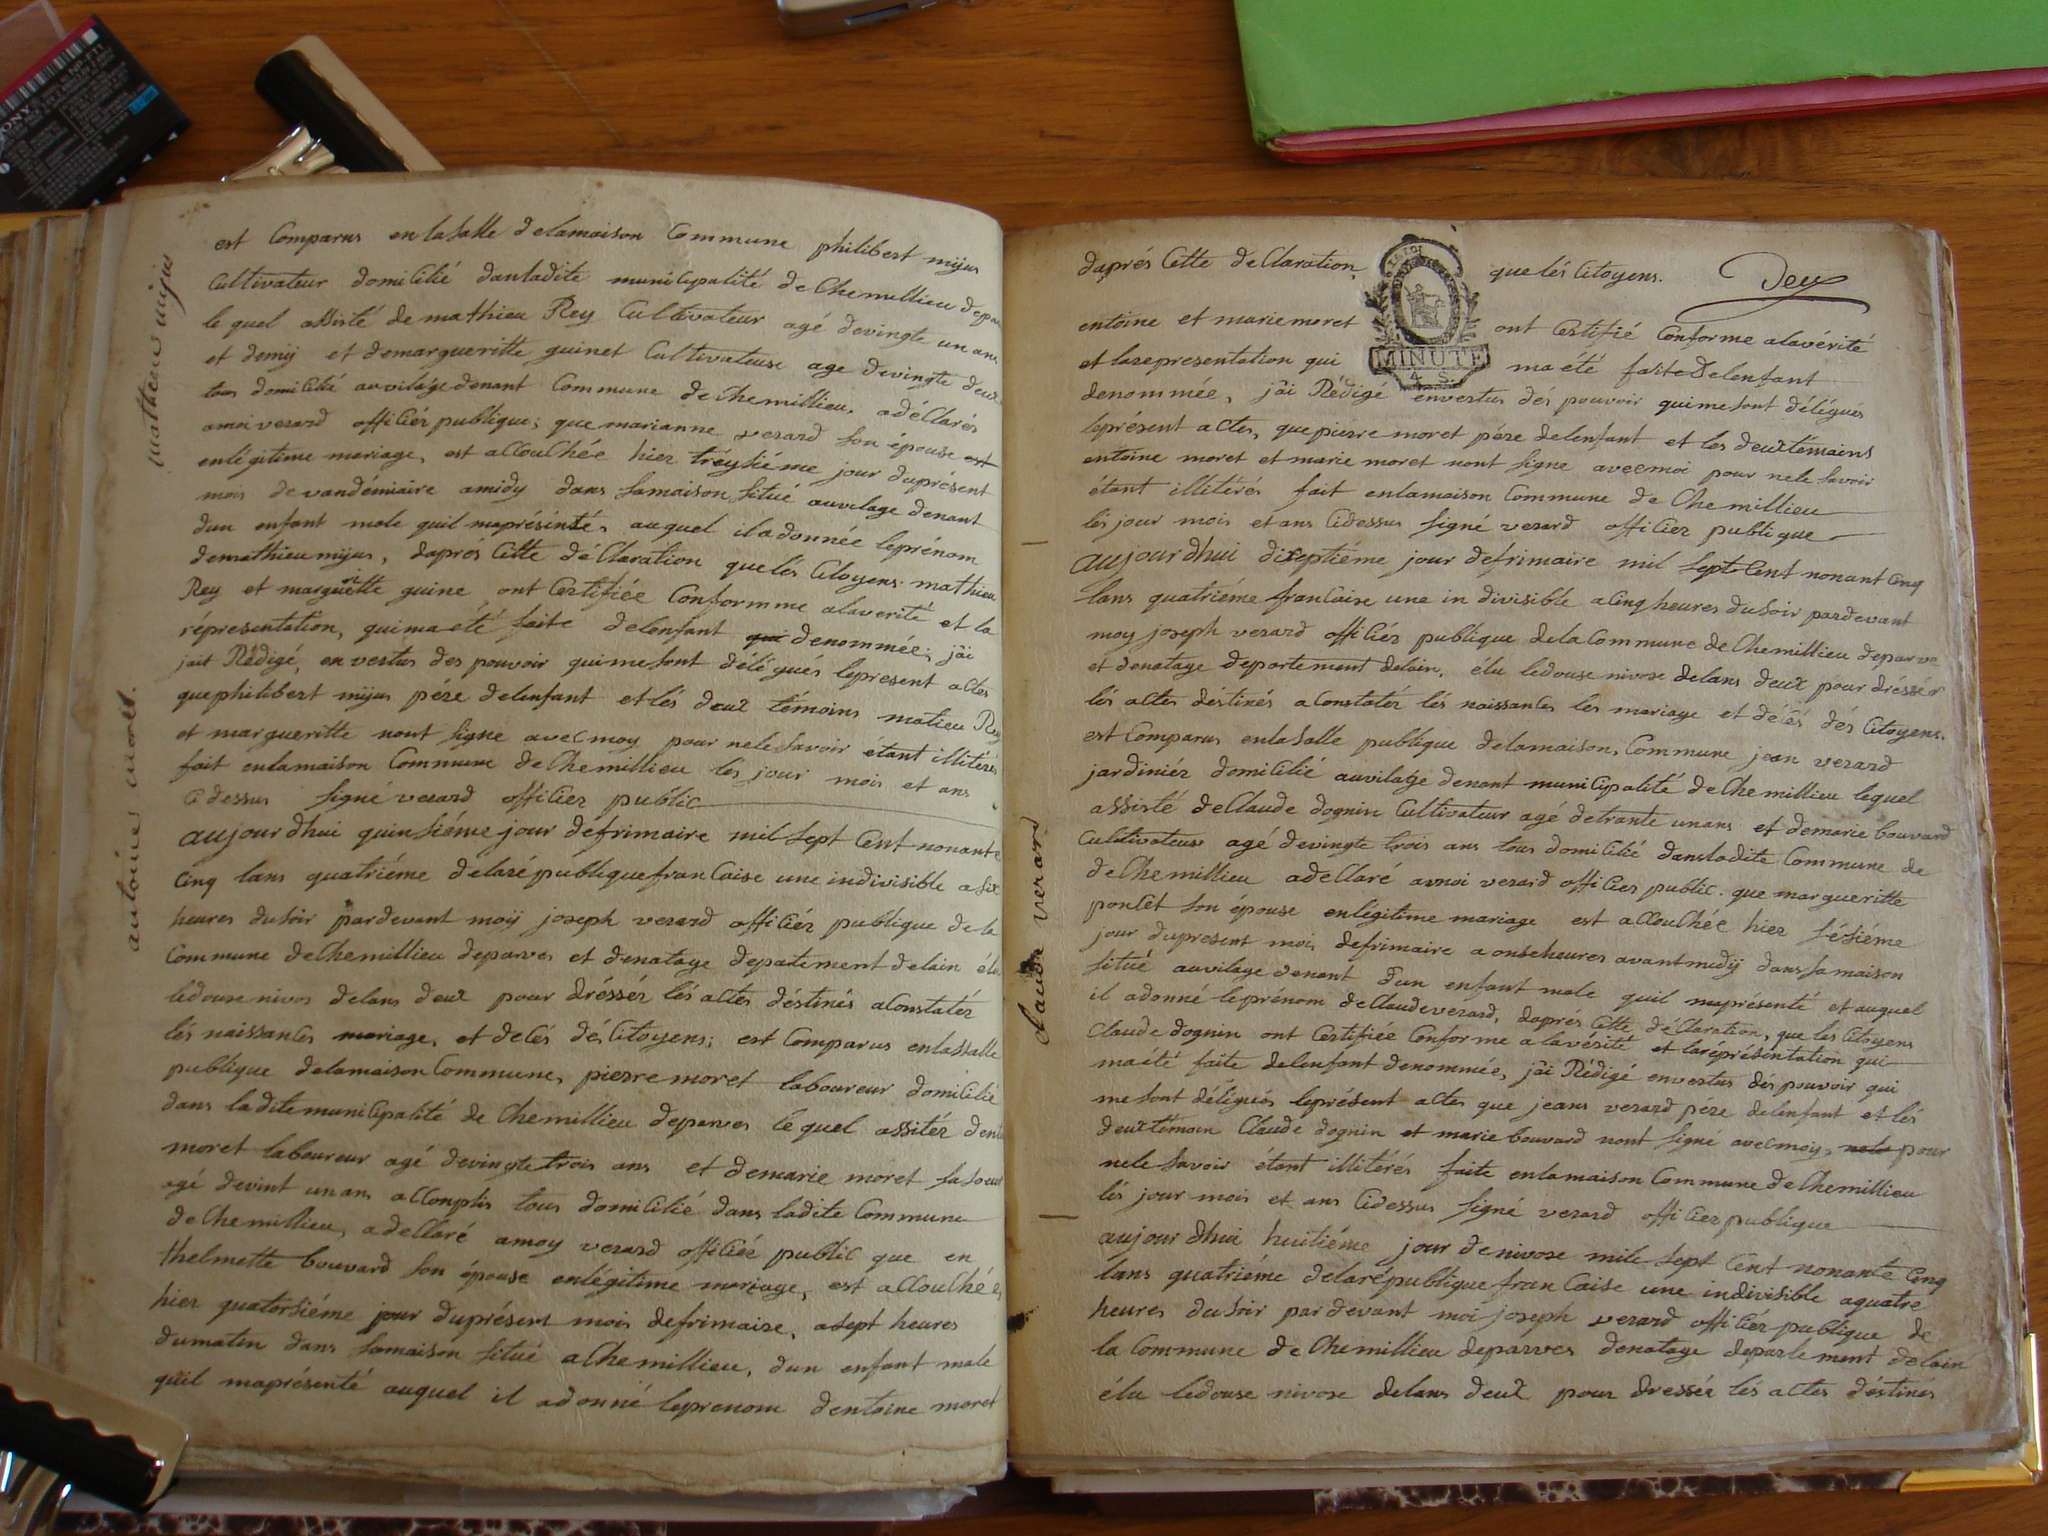 est Comparus en la salle delamaison Commune philibert mijus
Cultivateur domicilié dansladite municipalité de Chemillieu depar
le quel assisté de mathieu Rey Cultivateur agé devingte un ans
et demij et demargueritte guinet Cultivateuse age devingte deux
tous domicilié auvilage denant Commune de Chemillieu. adéClarés
amoi verard officiér publique; que marianne verard son épouse est
enlégitime meriage, est allouchée hier tréysiéme jour duprésent
mois devandémiaire amidy dans samaison situé auvilage denant
dun enfant male quil maprésinté, auquel ila donnée leprénom
demathieu mijus, daprés Cette déClaration que lés Citoyens mathieu
Rey et margueritte guine ont Certifiée Conformme alaverité et la
répresentation, quima été faite delenfant qui denommée, jäi
jait Rédigé, en vertus des pouvoir quimesont délégués lepresent actes
quephilibert mijus pére delenfant et lés deux témoins matieu Rey
et margueritte nont signe avec moy pour nelesavoir étant illitérés
fait enlamaison Commune de Chemillieu lés jour mois et ans
Cidessus signé verard officier public
aujourdhui quinsiéme jour défrimaire mil sept Cent nonante
Cinq lans quatriéme delarépublique franCaise une indivisible asix
heures dusoir pardevant moij joseph verard officiér publique de la
Commune deChemillieu deparves et denatage depatement delain élu
ledouse nivos delans deux pour dréssér lés actes déstinés aConstatér
lés naissances mariage, et decés dés Citoyens; est Comparus enlassalle
publique delamaison Commune, pierre moret laboureur domicilié
dans ladite municipalité de Chemillieu deparves le quel assitér dent
moret laboureur agé devingte trois ans et demarie moret sasoeur
agé devint un ans acComplis tous domicilié dans ladite Commune
de Chemillieu, adeClaré amoy verard officiér public que en
thelmette bouvard son épouse enlégitime meriage, est allouchée
hier quatorsiéme jour duprésent mois defrimaire, asept heures
dumatin dans samaison situé aChemillieu, dun enfant male
quil maprésenté auquel il adonné leprenom dentoine moret
mathieu mijus
antoine moret.
daprés Cette deClaration, que lés Citoyens. Dey
entoine et marie moret ont Certifié Conforme alavérité
et larepresentation qui ma été faite delenfant
MINUTE
4 S.
denommée, jäi Rédigé envertus dés pouvoir quimesont délégués
leprésent actes, que pierre moret pére delenfant et les deux témains
entoine moret et marie moret nont signe avecmoi pour nele savoir
étant illitérés fait enlamaison Commune de Chemillieu
lés jour mois et ans Cidessus signé verard officier publique
aujourdhui diseptiéme jour defrimaire mil sept Cent nonant Cinq
lans quatriéme francaise une in divisible aCinq heures dusoir pardevant
moy joseph verard officiér publique dela Commune de Chemillieu deparve
et denatage departement delain, élu ledouse nivose delans deux pour drésser
lés actes déstinés aConstatér lés naissances les mariage et décés dés Citoyens.
est Comparus enlasalle publique delamaison, Commune jean verard
jardiniér domicilié auvilage denant municipalité de Chemillieu lequel
assisté deClaude dognin Cultivateur agé detrante un ans et demarie bouvard
Cultivateuse agé devingte trois ans tous domicilié dansladite Commune de
deChemillieu adeClaré amoi verard officier public. que margueritte
poncét son épouse enlégitime mariage est allouchée hier séSiéme
jour dupresent mois defrimaire a onseheures avant midij dans samaison
situé auvilage denant d'un enfant male quil maprésenté et auquel
il adonné leprénom deClaudeverard, daprés Cette déClaration, que les Citoyens
Claude dognin ont Certifiée Conforme alavérité et laréprésentation qui
maété faite delenfant denommée, jäi Rédigé envertus dés pouvoir qui
me sont délégués leprésent actes que jeans verard pére delenfant et lés
deux témoin Claude dognin et marie bouvard nont signé avecmoy, nele pour
nele savoir étant illitérés faite enlamaison Commune de Chemillieu
lés jour mois et ans Cidessus signé verard officier publique
aujourdhui huitiéme jour denivose mile sept Cent nonante Cinq
lans quatriéme delarépublique franCaise une indivisible aquatre
heures dusoir pardevant moi joseph verard officiér publique de
la Commune de Chemillieu deparves denatage departement delain
élu ledouse nivose delans deux pour dressér lés actes déstinés
Claude verard
SONY
NP-FT1